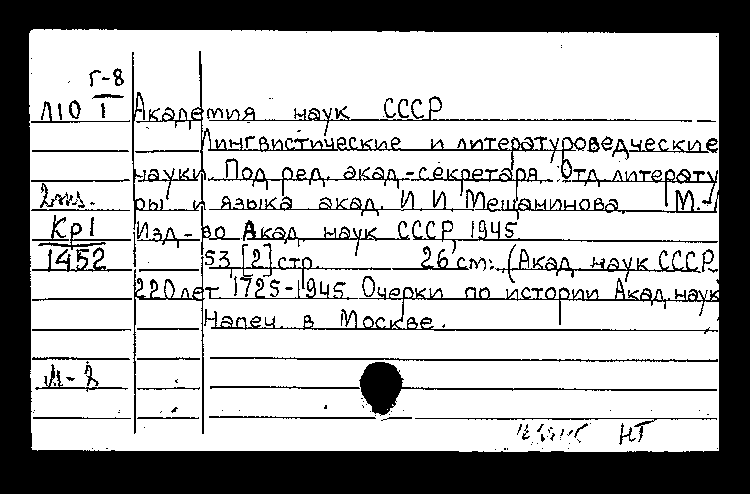 Г-8
Л10 I Академия наук СССР
Лингвистические и литературоведческие
науки. Под ред. акад.-секретаря Отд. литерату
2 экз. ры и языка акад. И. И. Мещанинова. М.-Л
Кр1 Изд-во Акад. наук СССР, 1945.
1452 53, [2] стр. 26 cm. (Акад. наук СССР
220 лет 1725-1945. Очерки по истории Акад. наук
Напеч. в Москве.
М-8
НТ